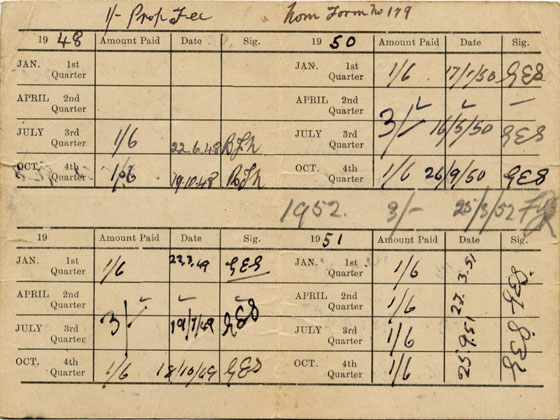 1/- Prop Fee Nom Form No 179
1948 Amount Paid Date Sig.
JAN. 1st Quarter
APRIL 2nd Quarter
JULY 3rd Quarter 1/6 22.6.48
OCT. 4th Quarter 1/6 19.10.48
1950 Amount Paid Date Sig.
JAN. 1st Quarter 1/6 17/1/50 GES
APRIL 2nd Quarter
JULY 3rd Quarter 3/- 16/5/50 GES
OCT. 4th Quarter 1/6 26/9/50 GES
1952. 3/- 25/3/52
19 Amount Paid Date Sig.
JAN. 1st Quarter 1/6 GES
APRIL 2nd Quarter
JULY 3rd Quarter 3/- 19/7/49 GES
OCT. 4th Quarter 1/6 18/10/49 GES
1951 Amount Paid Date Sig.
JAN. 1st Quarter 1/6 27.3.51
APRIL 2nd Quarter 1/6
JULY 3rd Quarter 1/6 25.9.51
OCT. 4th Quarter 1/6